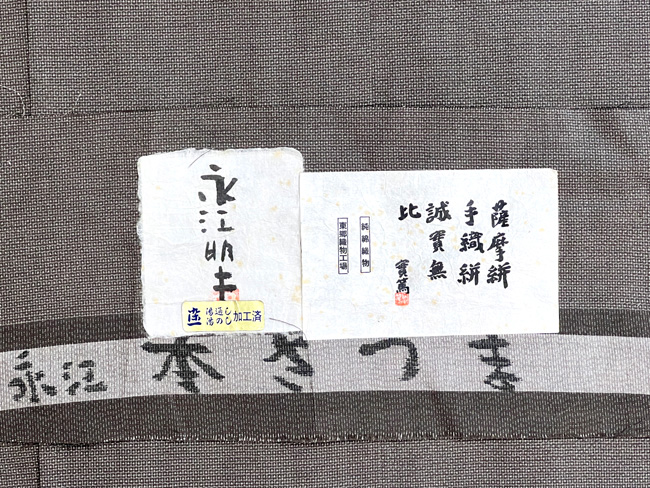 薩摩絣
手織絣
誠實無
比
實篤
純綿織物
東郷織物工場
永江明夫
湯通し
湯のし
加工済
永江
本きつま